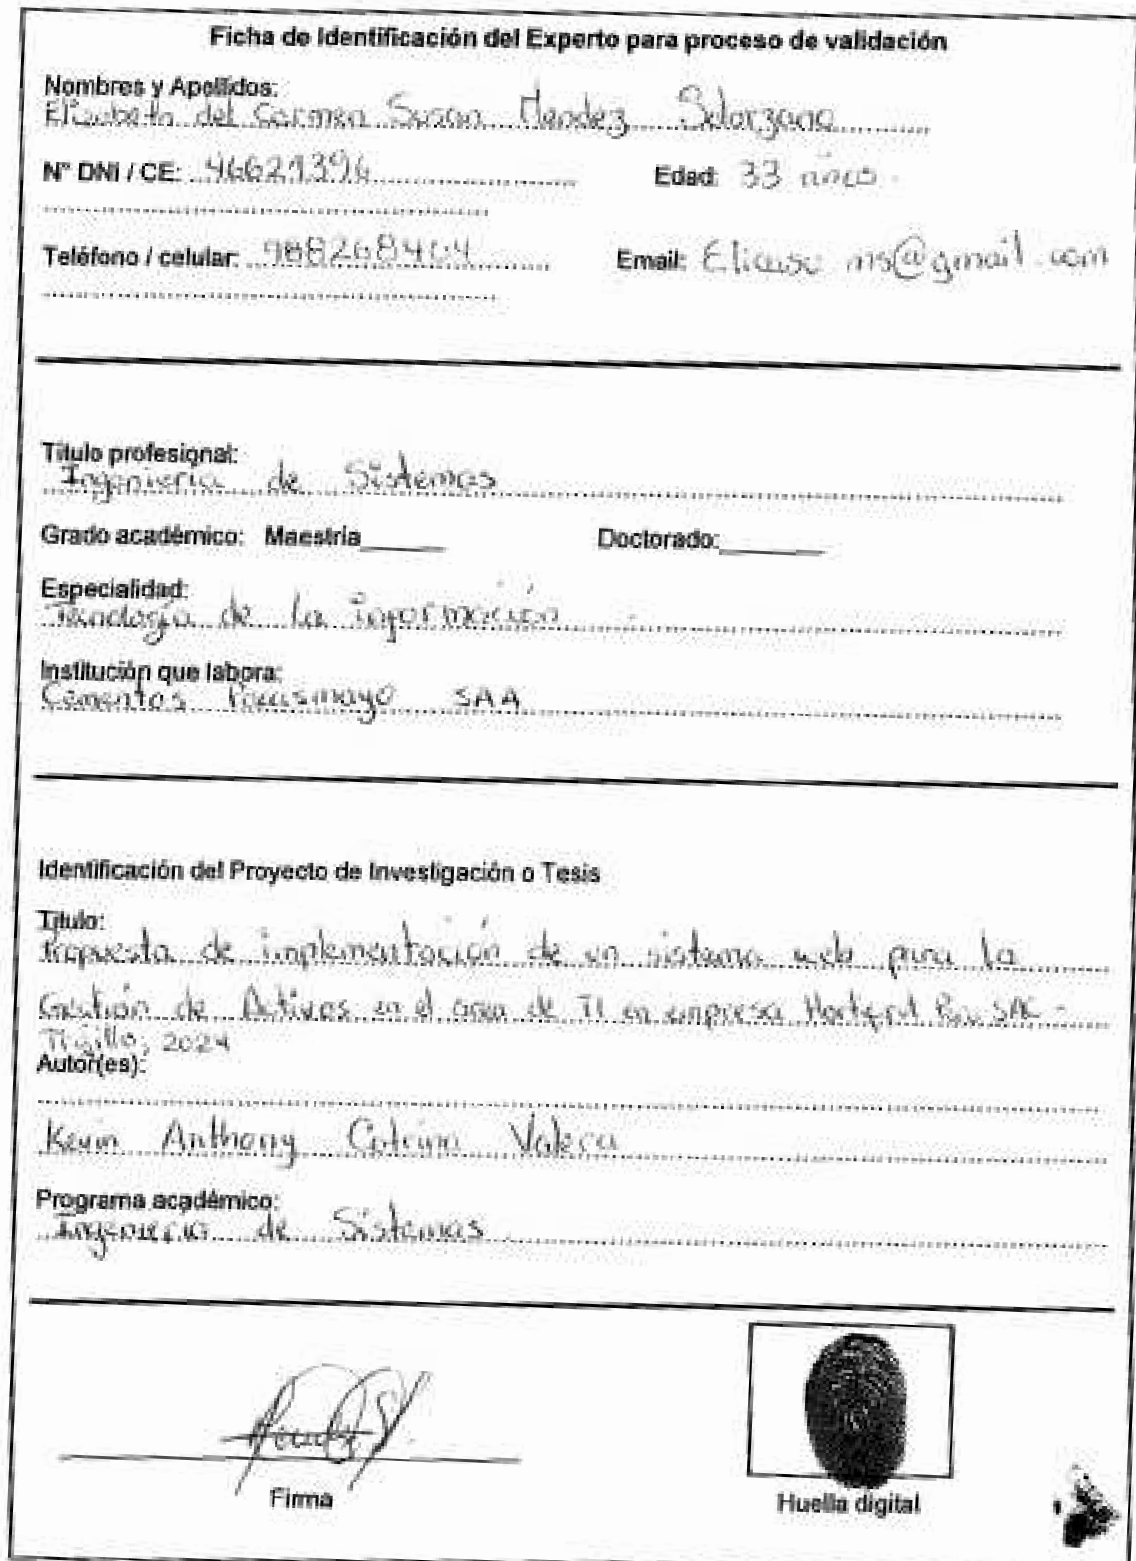 Ficha de Identificación del Experto para proceso de validación
Nombres y Apellidos:
Elizabeth del Carmen Susan Mendez Solorzano
N° DNI / CE: 46621396 Edad: 33 años
Teléfono / celular: 988268404 Email: @gmail.com
Título profesional:
Ingeniería de Sistemas
Grado académico: Maestría______ Doctorado:_______
Especialidad:
Tecnología de la información
Institución que labora:
Cementos Pacasmayo SAA
Identificación del Proyecto de Investigación o Tesis
Título:
Propuesta de implementación de un sistema web para la
Gestión de Activos en el área de TI en empresa SAC -
Trujillo, 2024
Autor(es):
Kevin Anthony Valera
Programa académico:
Ingeniería de Sistemas
Firma
Huella digital